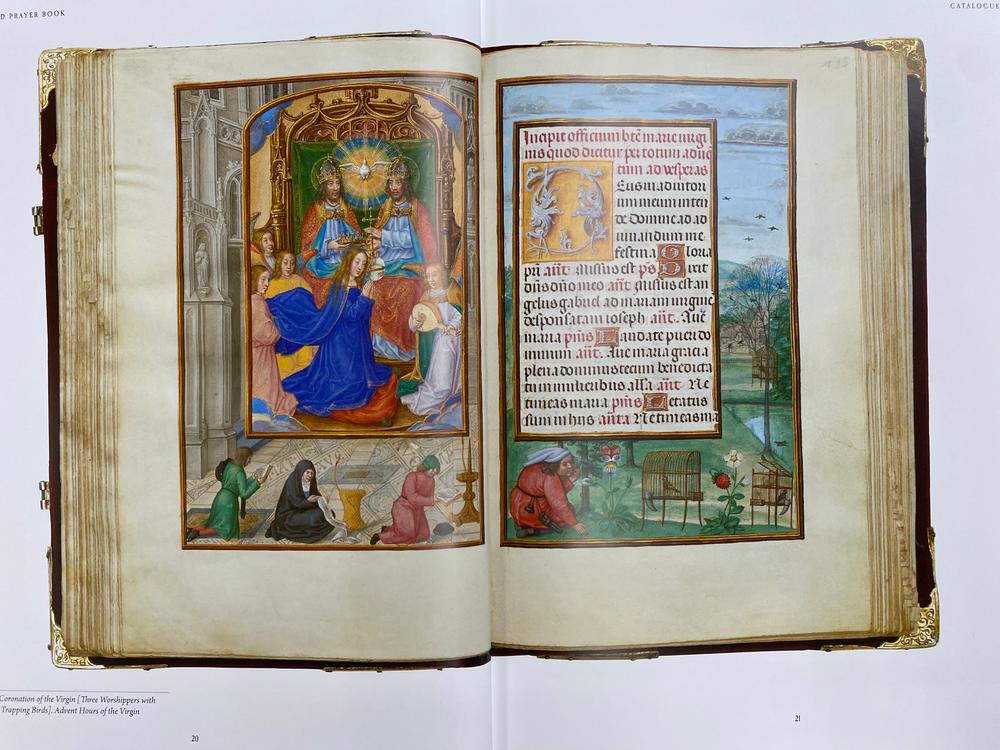 D PRAYER BOOK
CATALOGUE
Incipit officium bt̃e marie virgi
nis quod dicitur per totum aduẽ
tum ad vesperas
Deus in adiutori
um meum inten
de Domine ad ad
iuuandum me
festina Gloria
pr̃i añt Missus est ps Dixit
dñs dño meo añt Missus est an
gelus gabriel ad mariam virginẽ
desponsatam ioseph añt. Aue
maria pm̃s Laudate pueri do
minum añt. Aue maria gracia
plena dominus tecum benedicta
tu in mulieribus alla añt Ne
timeas maria pm̃s Letatus
sum in hijs añta Ne timeas ma
Coronation of the Virgin [Three Worshippers with
Trapping Birds], Advent Hours of the Virgin
20
21